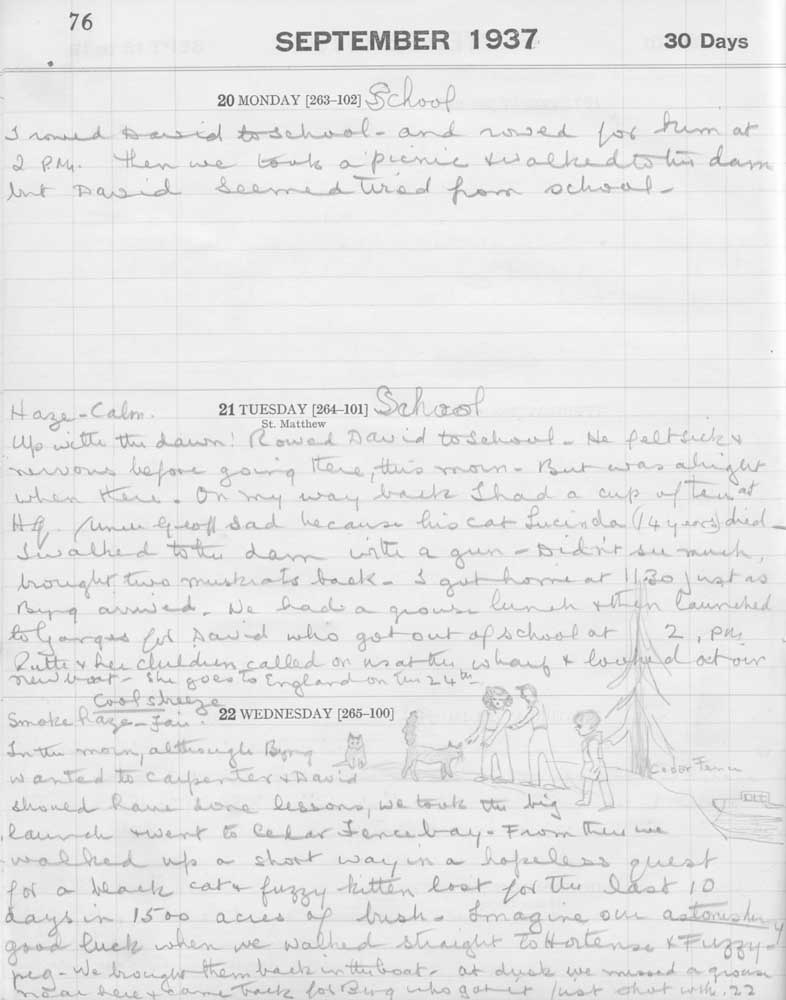 76
SEPTEMBER 1937
30 Days
20 MONDAY [263–102] School
I rowed David to school - and rowed for him at
2 P.M. Then we took a picnic & walked to the dam
but David seemed tired from school -
Haze - Calm.
21 TUESDAY [264–101] School
St. Matthew
Up with the dawn! Rowed David to school - He felt sick &
nervous before going there, this morn - But was alright
when there. On my way back I had a cup of tea at
HQ. Uncle Geoff sad because his cat Lucinda (14 years) died -
I walked to the dam with a gun - Didn't see much,
brought two muskrats back - I got home at 11.30 just as
Byng arrived. We had a grouse lunch & then launched
to Ganges for David who got out of school at 2, pm.
& her children called on us at the wharf & looked at our
new boat - She goes to England on the 24th -
Cool breeze
Smoke haze - Fair.
22 WEDNESDAY [265–100]
In the morn, although Byng
wanted to carpenter & David
should have done lessons, we took the big
launch & went to Cedar Fence bay - From there we
walked up a short way in a hopeless quest
for a black cat & fuzzy kitten lost for the last 10
days in 1500 acres of bush - Imagine our astonishing
good luck when we walked straight to Hortense & Fuzzy-
peg - We brought them back in the boat - at dusk we missed a grouse
near here & came back for Byng who got it just shot with .22
Cedar Fence